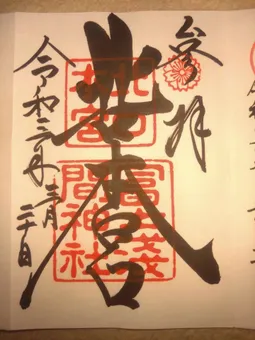 参拝
北口本宮
北口
本宮
冨士浅
間神社
令和三年三月二十日